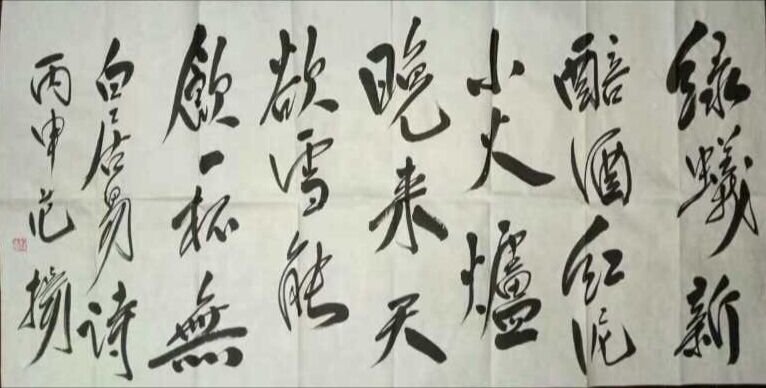 綠蟻新
醅酒紅泥
小火爐
晚来天
欲雪能
飲一杯無
白居易诗
丙申范